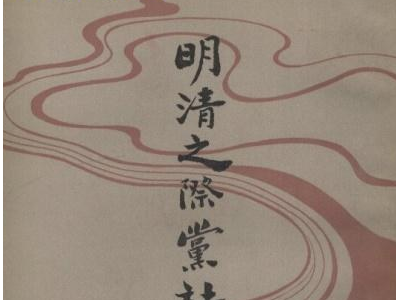 明清之際黨社